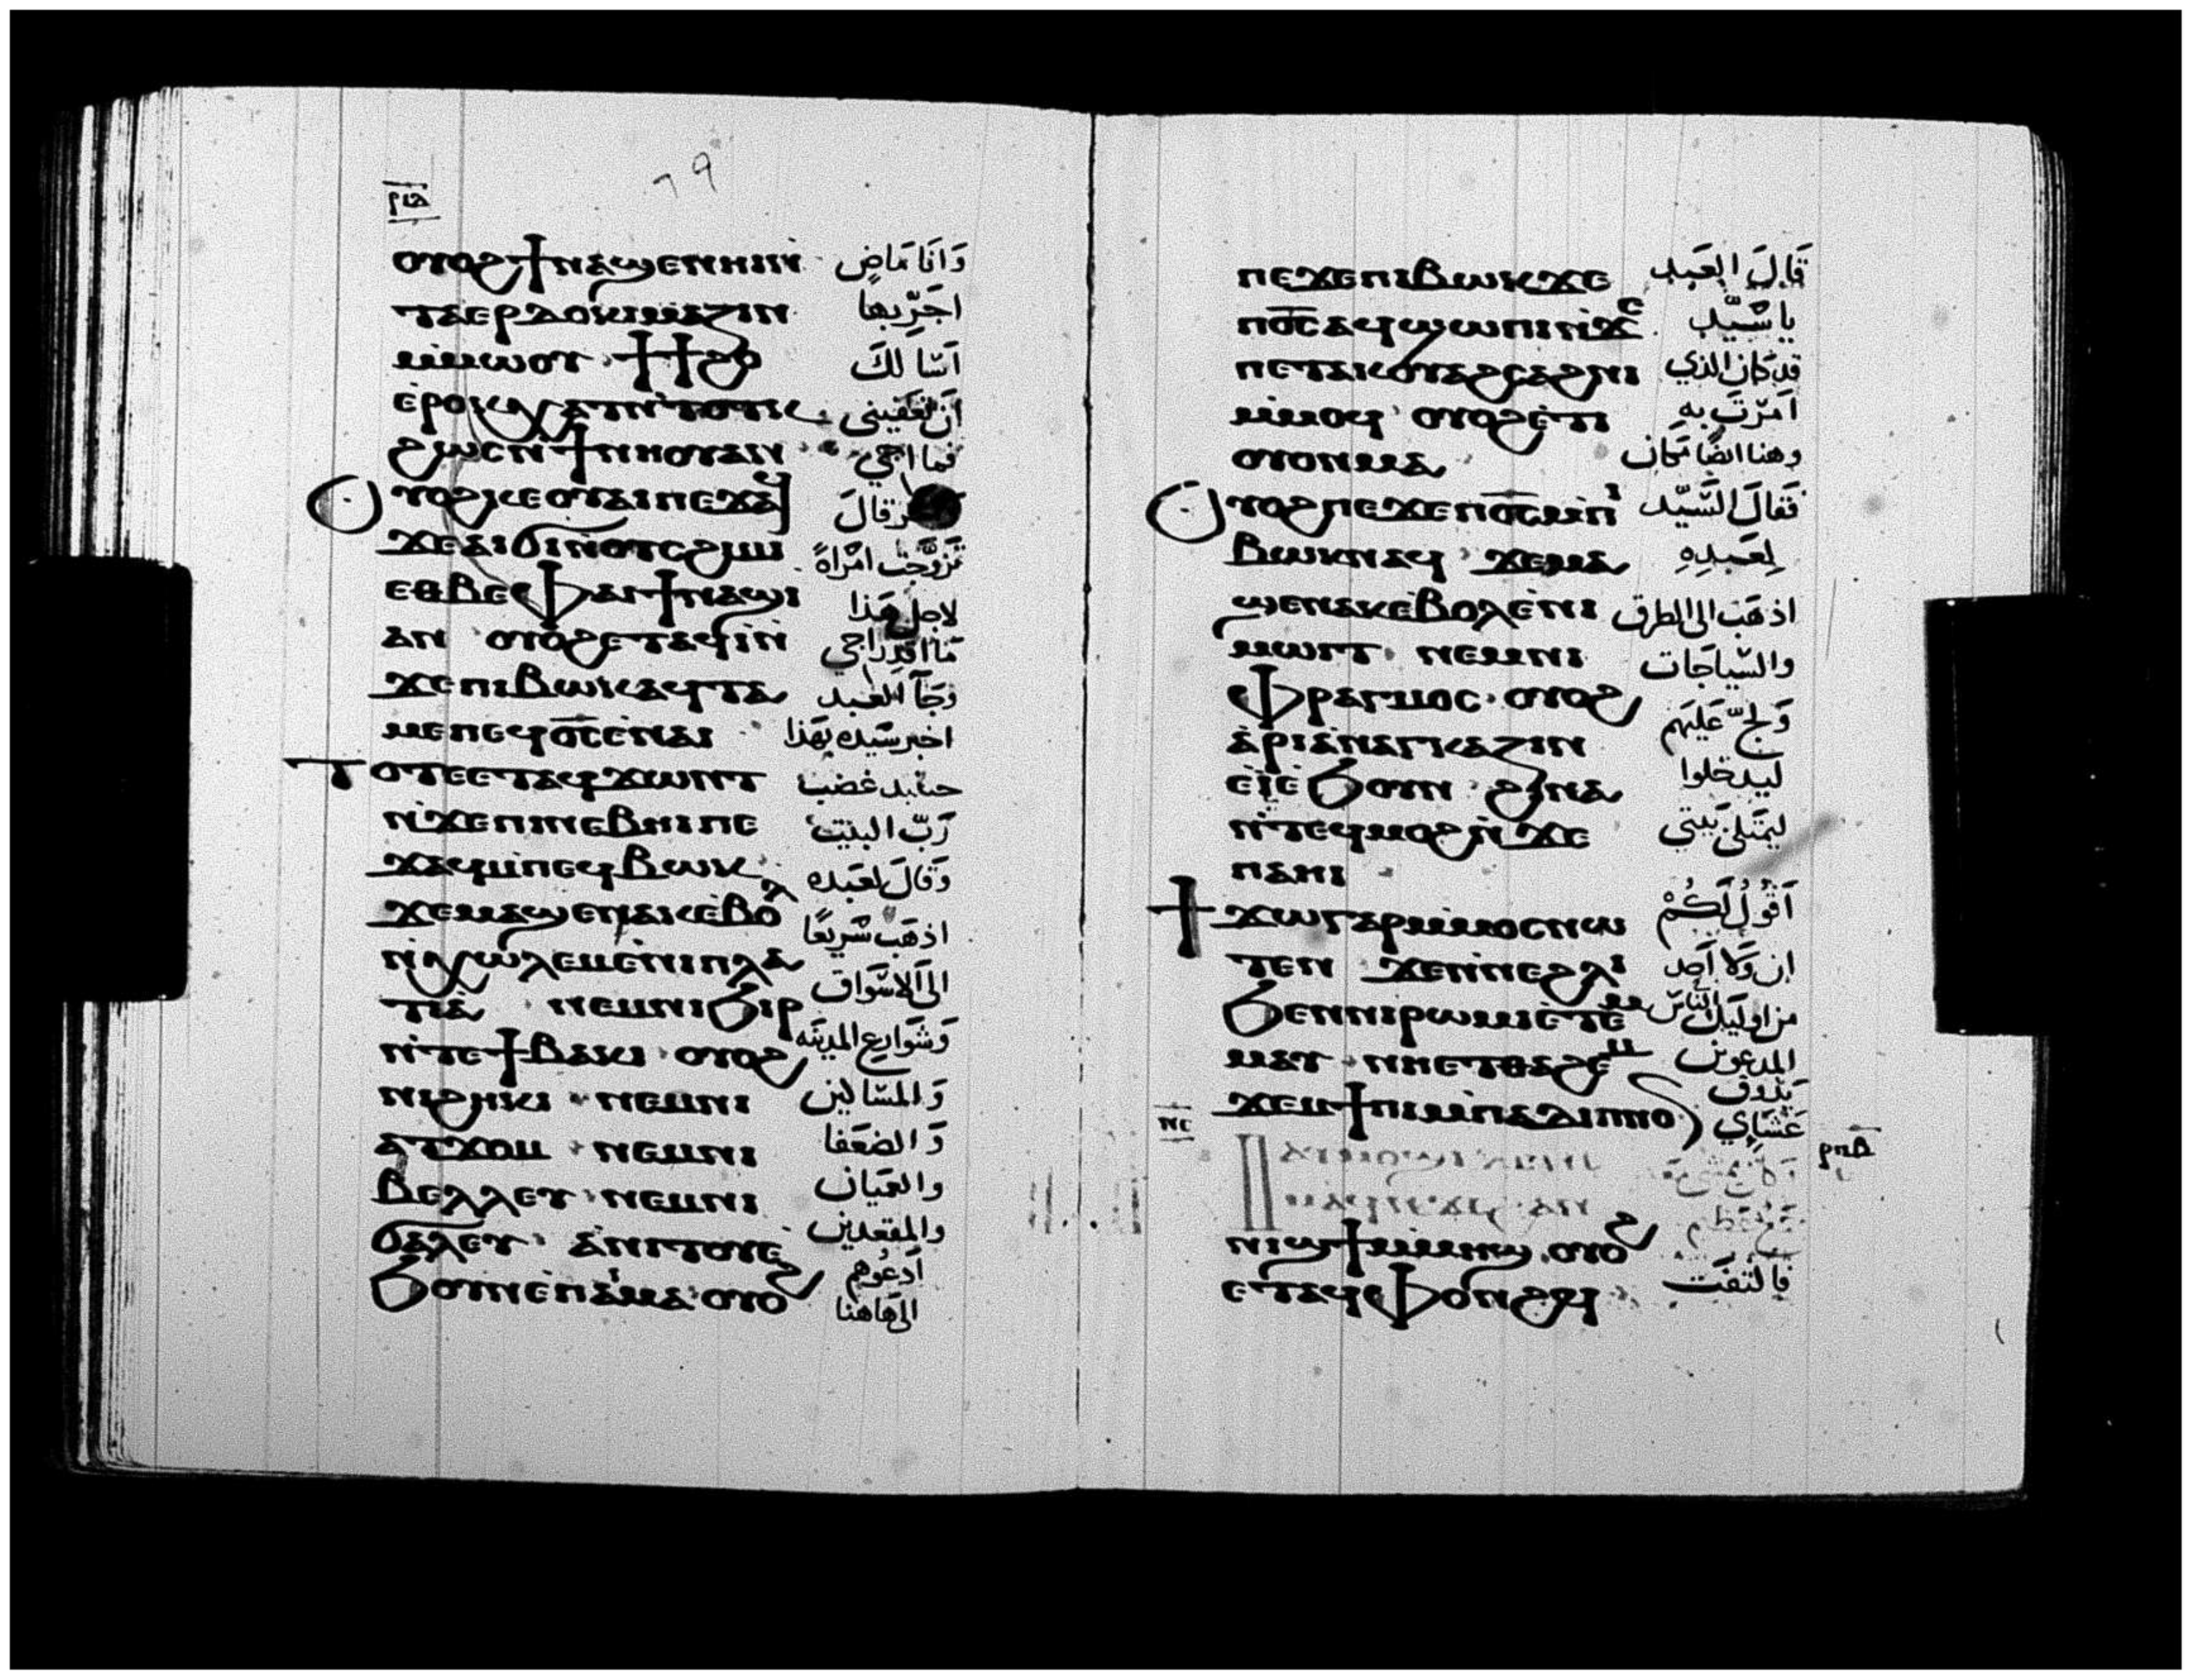 ⲟⲩⲟϩϯⲛⲁϣⲉⲛⲏⲓⲛ̀ وَانَا مَاضٍ
ⲧⲁⲉⲣⲇⲟⲕⲓⲙⲁⲍⲓⲛ اجَرِّبها
ⲙ̀ⲙⲱⲟⲩ ϯϯϩⲟ اَسَا لكَ
ⲉ̀ⲣⲟⲕⲭⲁⲧⲛ̀ⲧⲟⲧⲕ انْ تعَفيني
ϩⲱⲥⲛ̀ϯⲛⲏⲟⲩⲁⲛ فما اجي
ⲟⲩⲟϩⲕⲉⲟⲩⲁⲓⲡⲉϫⲁϥ قالَ
ϫⲉⲁⲓϭⲓⲛ̀ⲟⲩⲥϩⲓⲙⲓ تزَوَّجْت امْراةً
ⲉⲑⲃⲉⲫⲁⲓϯⲛⲁϣⲓ لاجل هَذا
ⲁⲛ ⲟⲩⲟϩⲉⲧⲁϥⲓ̀ⲛ̀ مَا اقدِر اجي
ϫⲉⲡⲓⲃⲱⲕⲁϥⲧⲁ وَجَآ العَبد
ⲙⲉⲡⲉϥⲟ̅ⲥ̅ⲉ̀ⲛⲁⲓ اخبر سَيده بهَذا
ⲧⲟⲧⲉⲉⲧⲁϥϫⲱⲛⲧ حينيد غضب
ⲛ̀ϫⲉⲡⲓⲛⲉⲃⲏⲓⲡⲉ رَبّ البيت
ϫⲁϥⲙ̀ⲡⲉϥⲃⲱⲕ وَقالَ لعَبده
ϫⲉⲙⲁϣⲉⲛⲁⲕⲉ̀ⲃⲟⲗ اذهَبْ سْريعًا
ⲛ̀ⲭⲱⲗⲉⲙⲉ̀ⲛⲓⲡⲗⲁ الى اَلاسَواق
ⲧⲓⲁ̀ ⲛⲉⲙⲛⲓϧⲓⲣ وَشوَاريع المدينَه
ⲛ̀ⲧⲉϯⲃⲁⲕⲓ ⲟⲩⲟϩ
ⲛⲓϩⲏⲕⲓ ⲛⲉⲙⲛⲓ وَالمسَاكين
ⲁⲧϫⲟⲙ ⲛⲉⲙⲛⲓ وَالضعَفا
ⲃⲉⲗⲗⲉⲩ ⲛⲉⲙⲛⲓ والعَميَان
ϭⲁⲗⲉⲩ ⲁ̀ⲛⲓⲧⲟⲩⲉ̀ والمقعدين
ϧⲟⲩⲛⲉ̀ⲡⲁⲓⲙⲁ ⲟⲩⲟϩ اَدعُوهم
الى هَاهنا
ⲡⲉϫⲉⲡⲓⲃⲱⲕϫⲉ قَالَ العَبد
ⲡⲟ̅ⲥ̅ⲁϥϣⲱⲡⲓⲛ̀ϫⲉ ياسَيّد
ⲡⲉⲧⲁⲕⲟⲩⲁϩⲥⲁϩⲛⲓ قد كان الذي
ⲙ̀ⲙⲟϥ ⲟⲩⲟϩⲉ̀ⲧⲓ امَرْتَ به
ⲟⲩⲟⲛⲙⲁ وهنا ايضًا مَكان
ⲟⲩⲟϩⲡⲉϫⲉⲡⲟ̅ⲥ̅ⲙ̀ⲡⲓ فَقالَ السَّيّد
ⲃⲱⲕⲛⲁϥ ϫⲉⲙⲁ لِعَبدِهِ
ϣⲉⲛⲁⲕⲉ̀ⲃⲟⲗⲉ̀ⲛⲓ اذهَبْ الى الطرق
ⲙⲱⲓⲧ ⲛⲉⲙⲛⲓ والسّيَاجَات
ⲫⲣⲁⲅⲙⲟⲥ ⲟⲩⲟϩ وَلجّ عَليَهم
ⲁ̀ⲣⲓⲁ̀ⲛⲁⲅⲕⲁⲍⲓⲛ
ⲉ̀ⲓ̀ⲉ̀ϧⲟⲩⲛ ϩⲓⲛⲁ ليَدخلوا
ⲛ̀ⲧⲉϥⲙⲟϩⲛ̀ϫⲉ ليَمتَلى بيَتي
ⲡⲁⲏⲓ
ϯϫⲱⲅⲁⲣⲙ̀ⲙⲟⲥⲛⲱ اَقوُلُ لَكُمْ
ⲧⲉⲛ ϫⲉⲛ̀ⲛⲉϩⲗⲓ ان وَلا اَحَد
ϧⲉⲛⲛⲓⲣⲱⲙⲓⲉ̀ⲧⲉⲙ من اوليَك الناسْ
ⲙⲁⲩ ⲛⲏⲉⲧⲑⲁϩⲉⲙ المدعوين
ϫⲉⲙϯⲡⲓⲙ̀ⲡⲁⲇⲓⲡⲛⲟⲛ يَذوق
ⲛⲥ عَشَاي ⲣⲡⲃ
ⲛⲓϣϯⲙ̀ⲙⲏϣ ⲟⲩⲟϩ
ⲉⲧⲁϥⲫⲟⲛϩϥ فالتَفَت